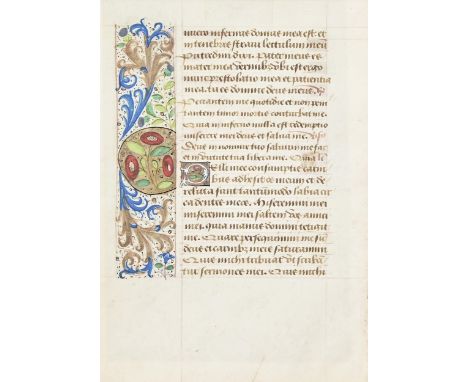 tuero infernus domus mea est: et
in tenebris stravi lectulum meū
Putredini dixi. Pater meus es
mater mea et vermibꝰ. Ubi est ergo
nunc prestolatio mea et patientia
mea. tu es domine deus meus.
Peccantem me quotidie et non pen
tantem timor mortis conturbat me.
Quia in inferno nulla est redemptio
miserere mei deus et salva me.
Deus in nomine tuo salvum me fac
et in virtute tua libera me. Quia
Pelli mee consumptis carni
bus adhesit os meum et de
relicta sunt tantūmodo labia cir
ca dentes meos. Miseremini mei
miseremini mei saltem vos amici
mei. Quia manus domini tetigit
me. Quare persequimini me sic
deus et carnibꝰ meis saturamini
Quis michi tribuat ut scriban
tur sermones mei. Quis michi